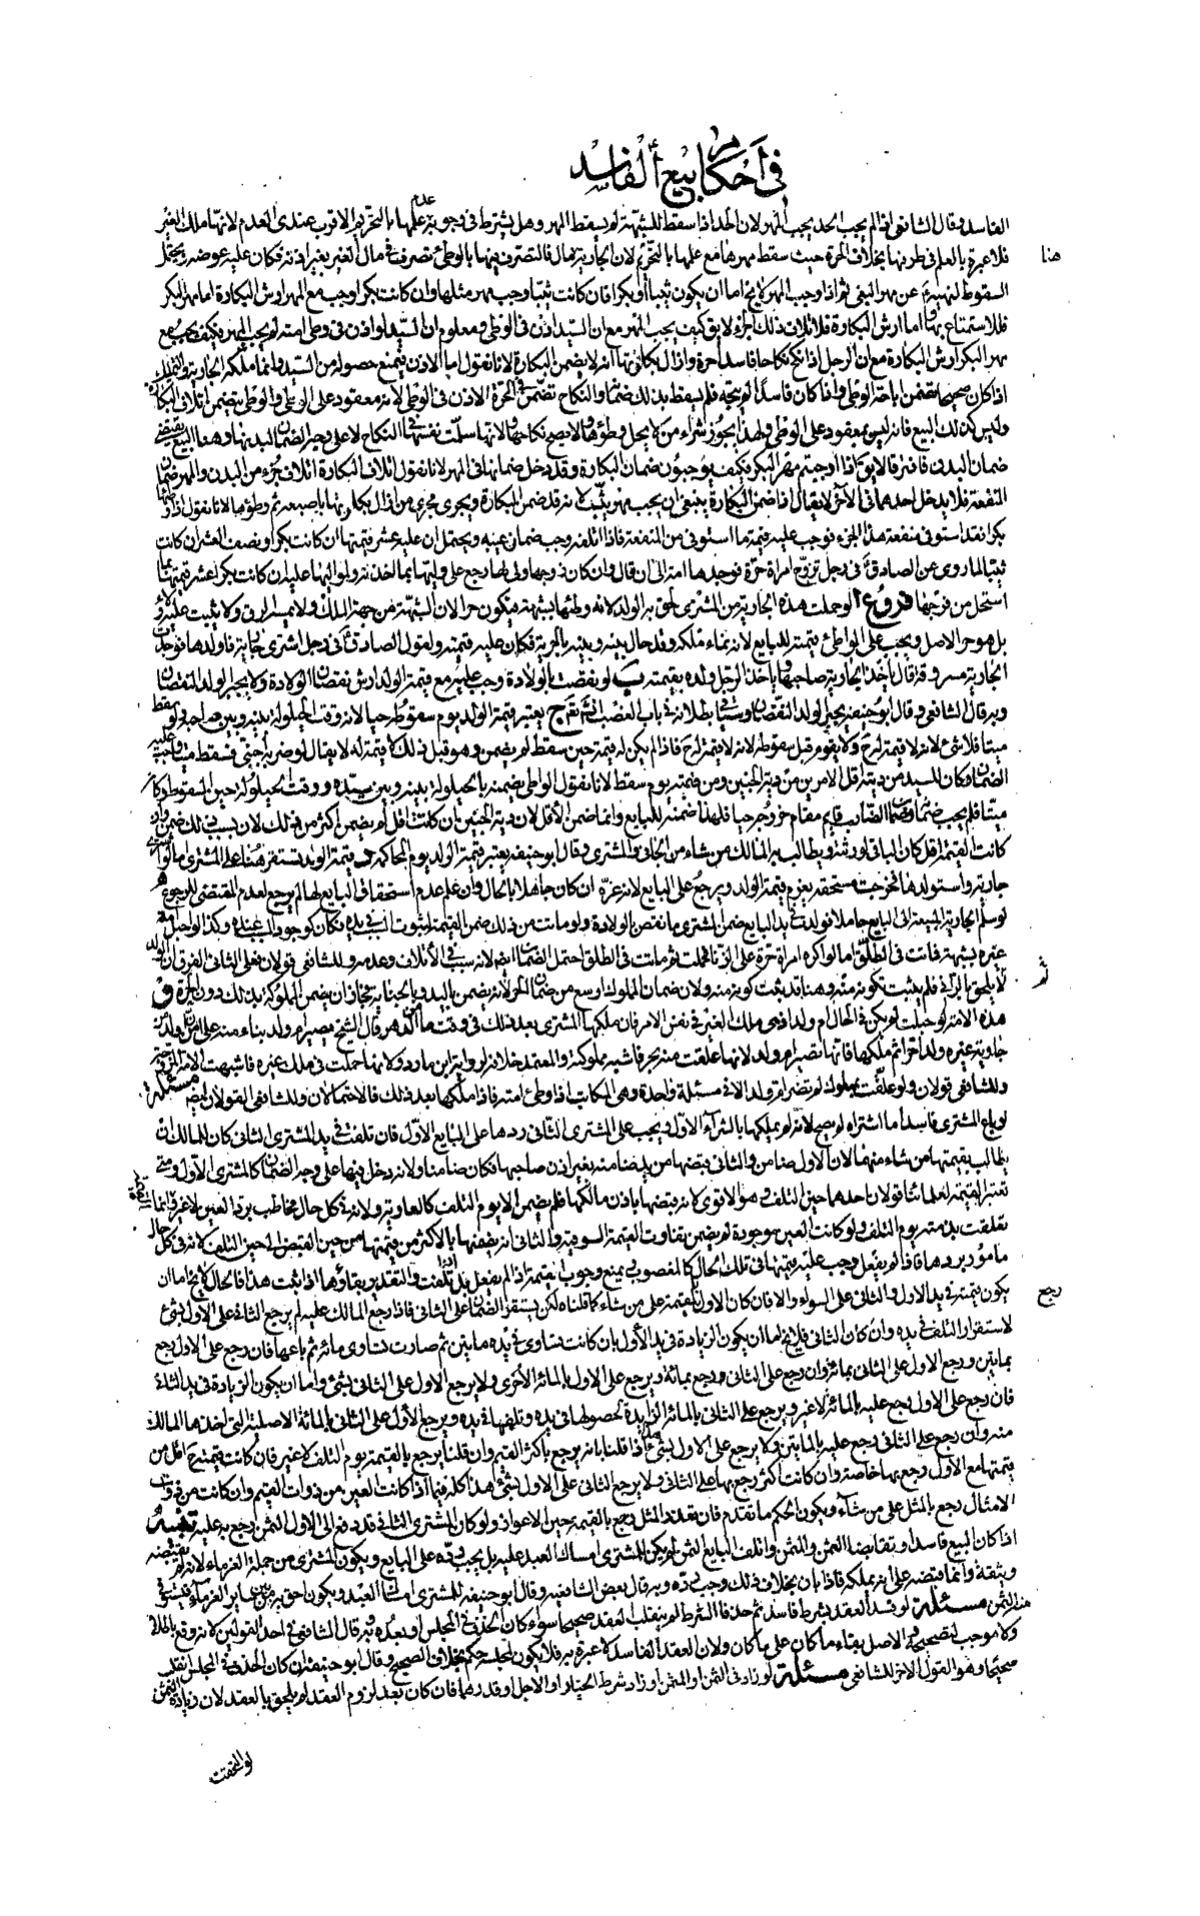 في احكام البيع الفاسد
الفاسد وقال الشافعي اذا لم يجب الحد يجب المهر لان الحد اذا سقط للشبهة لم يسقط المهر وهل يشترط في وجوبه عدم علمها بالتحريم الاقرب عندي العدم لانها ملك الغير
فلا عبرة بالعلم في طرفها بخلاف الحرة حيث سقط مهرها مع علمها بالتحريم لان الجارية مال فالتصرف فيها بالوطئ تصرف في مال الغير بغير اذنه فكان عليه عوضه ويحتمل
هنا
السقوط لنهيه عن مهر البغي ثم اذا وجب المهر فلا يخ اما ان يكون ثيبا أو بكرا فان كانت ثيبا وجب مهر مثلها وان كانت بكرا وجب مع المهر ارش البكارة اما مهر البكر
فللاستمتاع بها واما ارش البكارة فلاتلاف ذلك الجزء لا يق كيف يجب المهر مع ان السيد اذن في الوطئ ومعلوم ان السيد لو اذن في وطئ امته لم يجب المهر فكيف يجب مع
مهر البكر ارش البكارة مع ان الرجل اذا نكح نكاحا فاسدا حرة وازال بكارتها انه لا يضمن البكارة لانا نقول اما الاذن فيمنع حصوله من السيد وانما ملكه الجارية والتمليك
اذا كان صحيحا تضمن اباحة الوطئ واذا كان فاسدا لم يبحه فلم يسقط بذلك ضمانه واما النكاح تضمن في الحرة الاذن في الوطئ لانه معقود على الوطئ والوطئ يتضمن اتلاف البكارة
وليس كذلك البيع فانه ليس بمعقود على الوطئ ولهذا يجوز شراء من لا يحل وطؤها ولا يصح نكاحها ولانها سلمت نفسها في النكاح لا على وجه الضمان لبدنها وهنا البيع يقتضي
ضمان البدن فافترقا لا يق فاذا اوجبتم مهر البكر فكيف يوجبون ضمان البكارة وقد دخل ضمانها في المهر لانا نقول اتلاف البكارة اتلاف جزء من البدن والمهر ضمان
المنفعة فلا يدخل احدهما في الآخر لا يقال اذا ضمن البكارة ينبغي ان يجب مهر ثيب لانه قد ضمن البكارة ويجري مجرى من ازال بكارتها باصبعه ثم وطؤها لانا نقول اذا وطئها
بكرا فقد استوفى منفعة هذا الجزء فوجب عليه قيمة ما استوفى من المنفعة فاذا اتلفه وجب ضمان عينه ويحتمل ان عليه عشر قيمتها ان كانت بكرا ونصف العشر ان كانت
ثيبا لما روي عن الصادق في رجل تزوج امراة حرة فوجدها امة الى ان قال وان كان زوجها ولي لها رجع على وليها بما اخذته ولمواليها عليه ان كانت بكرا عشر قيمتها بما
استحل من فرجها فروع ا لو حملت هذه الجارية من المشترى لحق به الولد لانه وطئها بشبهة فيكون حرا لان الشبهة من جهة الملك ولا يسترق ولا يثبت عليه ولاء
بل هو حر الاصل ويجب على الواطئ قيمته للبايع لانه نماء ملكه وقد حال بينه وبينه بالحرية فكان عليه قيمته ولقول الصادق في رجل اشترى جارية فاولدها فوجدت
الجارية مسروقة قال ياخذ الجارية صاحبها وياخذ الرجل ولده بقيمته ب لو نقصت بالولادة وجب عليه مع قيمة الولد ارش نقصان الولادة ولا يجبر الولد النقصان
وبه قال الشافعي وقال ابو حنيفة يجبر الولد النقصان وسياتي بطلانه في باب الغصب انشاء الله تعالى ج يعتبر قيمة الولد يوم سقوطه حيا لانه وقت الحيلولة بينه وبين صاحبه ولو سقط
ميتا فلا شئ لانه لا قيمة له ح ولا يقوم قبل سقوطه لانه لا قيمة له ح فاذا لم يكن له قيمة حين سقط لم يضمن وهو قبل ذلك لا قيمة له لا يقال لو ضربه اجنبي فسقط ميتا وجب عليه
الضمان وكان للسيد من ديته اقل الامرين من دية الجنين ومن قيمته يوم سقط لانا نقول الواطئ ضمنه بالحيلولة بينه وبين سيده ووقت الحيلولة حين السقوط وكان
ميتا فلم يجب ضمانه وضمان الضارب قايم مقام خروجه حيا فلهذا ضمنه للبايع وانما ضمن الأقل لان دية الجنين ان كانت اقل لم يضمن اكثر من ذلك لان بسبب ذلك ضمن وان
كانت القيمة اقل كان الباقي لورثته ويطالب به المالك من شاء من الجاني والمشتري وقال ابو حنيفة يعتبر قيمة الولد يوم المحاكمة د قيمة الولد تستقر هنا على المشتري اما لو اشترى
جارية واستولدها فخرجت مستحقة يغرم قيمة الولد ويرجع على البايع لانه غره ان كان جاهلا بالحال وان علم عدم استحقاق البايع لها لم يرجع لعدم المقتضي للرجوع ه
لو سلم الجارية المبيعة الى البايع حاملا فولدت في يد البايع ضمن المشترى ما نقص بالولادة ولو ماتت من ذلك ضمن القيمة لثبوت السبب في يده فكان كوجود المسبب عنده وكذا لو احبل امة
غيره بشبهة فماتت في الطلق اما لو اكره امراة حرة على الزنا فحملت ثم ماتت في الطلق احتمل الضمان ايضا لانه سبب في الاتلاف وعدمه وللشافعي قولان فعلى الثاني الفرق ان الولد
لا يلحق بالزاني فلم يثبت تكونه منه وهنا قد يثبت كونه منه ولان ضمان المملوك اوسع من ضمان الحر لانه يضمن باليد وبالجناية فجاز ان يضمن المملوكة بذلك دون الحرة و
ثم
هذه الامة لو حبلت لم يكن في الحال ام ولد اذ هي ملك الغير في نفس الامر فان ملكها المشتري بعد ذلك في وقت ما من الدهر قال الشيخ تصير ام ولد بناء منه على ان من اولد
جارية غيره ولدا حرا ثم ملكها فانها تصير ام ولد لانها علقت منه بحر فاشبه مملوكته والمعتمد خلافه لرواية ابن مارد ولانها حملت في ملك غيره فاشبهت الامة المزوجة
وللشافعي قولان ولو علقت بمملوك لم تصر ام ولد الا في مسئلة واحدة وهي المكاتب اذا وطئ امته فاذا ملكها بعد ذلك فالاحتمالان وللشافعي القولان ايضا مسئلة
لو باع المشترى فاسدا ما اشتراه لم يصح لانه لم يملكها بالشراء الاول ويجب على المشتري الثاني ردها على البايع الاول فان تلفت في يد المشترى الثاني كان للمالك ان
يطالب بقيمتها من شاء منهما لان الاول ضامن والثاني قبضها من يد ضامنه بغير اذن صاحبها فكان ضامنا ولانه دخل فيها على وجه الضمان كالمشترى الأول ومتى
تعتبر القيمة لعلمائنا قولان احدهما حين التلف وهو الاقوى لانه قبضها باذن مالكها فلم يضمن الا يوم التلف كالعارية ولانه في كل حال مخاطب برد العين لا غير وانما
تعلقت بذمته يوم التلف ولو كانت العين موجودة لم يضمن بتفاوت القيمة السوقية والثاني انه يضمنها بالاكثر من قيمتها من حين القبض الى حين التلف لانه في كل حال
مأمور بردها فاذا لم يفعل وجب عليه قيمتها في تلك الحال كالمغصوب يمنع وجوب القيمة اذا لم يفعل بل اذا تلفت والتقدير بقاؤها اذا ثبت هذا فالحال لا يخ اما ان
يكون قيمته في يد الاول والثاني على السواء والا فان كان الاول فالقيمة على من شاء كما قلناه لكن يستقر الضمان على الثاني فاذا رجع المالك عليه لم يرجع الثاني على الاول بشئ
رجع
لاستقرار التلف في يده وان كان الثاني فلا يخ اما ان يكون الزيادة في يد الأول بان كانت تساوي في يده مايتين ثم صارت تساوي مائة ثم باعها فان رجع على الاول رجع
بمايتين ورجع الاول على الثاني بمائة وان رجع على الثاني رجع بمائة ويرجع على الاول بالمائة الأخرى ولا يرجع الاول على الثاني بشئ واما ان يكون الزيادة في يد الثاني
فان رجع على الاول رجع عليه بالمائة لا غير ويرجع على الثاني بالمائة الزايدة لحصولها في يده وتلفها في يده ويرجع الأول على الثاني بالمائة الاصلية التي اخذها المالك
منه وان رجع على الثاني رجع عليه بالمايتين ولا يرجع على الاول بشئ هذا اذا قلنا بانه يرجع باكثر القيم وان قلنا يرجع بالقيمة يوم التلف لا غير فان كانت قيمته ح اقل من
قيمتها مع الاول رجع بها خاصة وان كانت اكثر رجع بها على الثاني ولا يرجع الثاني على الاول بشئ هذا كله فيما اذا كانت العين من ذوات القيم وان كانت من ذوات
الامثال رجع بالمثل على من شاء ويكون الحكم ما تقدم فان تعذر المثل رجع بالقيمة حين الاعواز ولو كان المشترى الثاني قد دفع الى الاول الثمن رجع به عليه تنبيه
اذا كان المبيع فاسدا وتقابضا الثمن والمثمن واتلف البايع الثمن لم يكن للمشترى امساك العبد عليه بل يجب رده على البايع ويكون المشترى من جملة الغرماء لانه لم يقبضه
وثيقة وانما قبضه على انه يملكه فاذا بان بخلاف ذلك وجب رده وبه قال بعض الشافعية وقال ابو حنيفة للمشترى امساك العبد ويكون احق به من ساير الغرماء فيستوفي
منه الثمن مسئلة لو فسد العقد بشرط فاسد ثم حذفا الشرط لم ينقلب العقد صحيحا سواء كان الحذف في المجلس او بعده وبه قال الشافعي في احد القولين لانه وقع باطلا
ولا موجب لتصحيحه والاصل بقاء ما كان على ما كان ولان العقد الفاسد لا عبرة به فلا يكون لمجلسه حكم بخلاف الصحيح وقال ابو حنيفة ان كان الحذف في المجلس انقلب
صحيحا وهو القول الاخر للشافعي مسئلة لو زاد في الثمن او المثمن او زاد شرط الخيار او الاجل او قدرهما فان كان بعد لزوم العقد لم يلحق بالعقد لان زيادة الثمن
لو التحقت